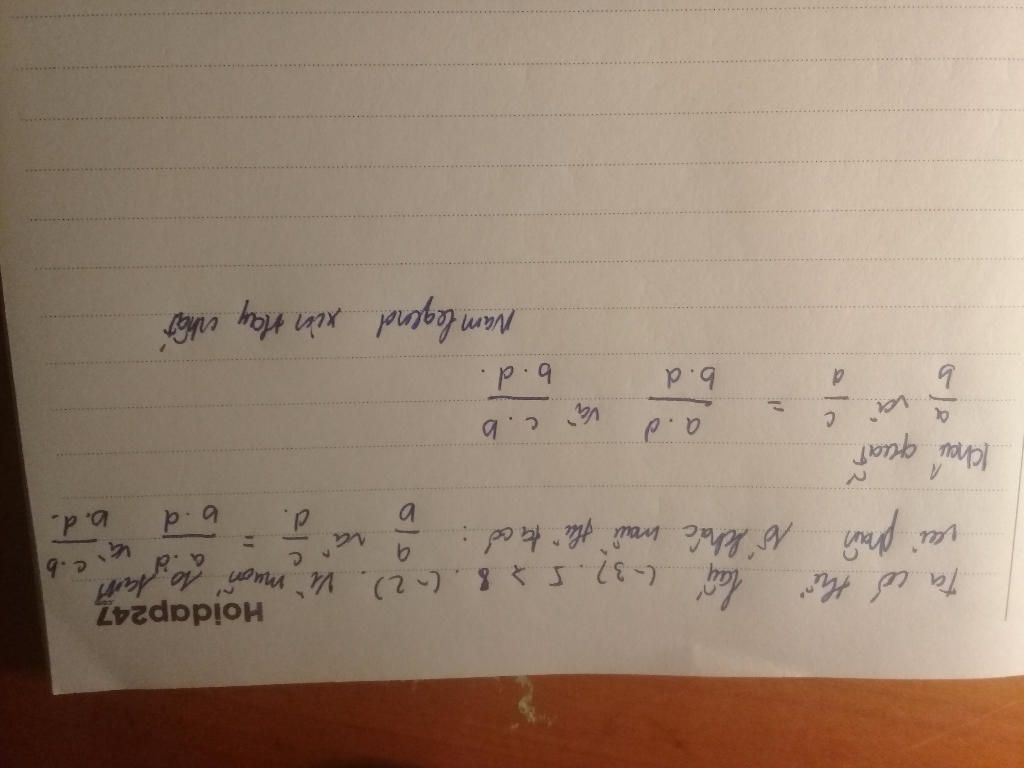 Hoidap247
Ta có thể lấy (-3). 5 > 8. (-2). Vì muốn so sánh
vài phân số khác mẫu thì ta có: a/b và c/d. = a.d/b.d và c.b/b.d.
Khái quát
a/b và c/d = a.d/b.d và c.b/b.d.
Namlegend xin hay nhất